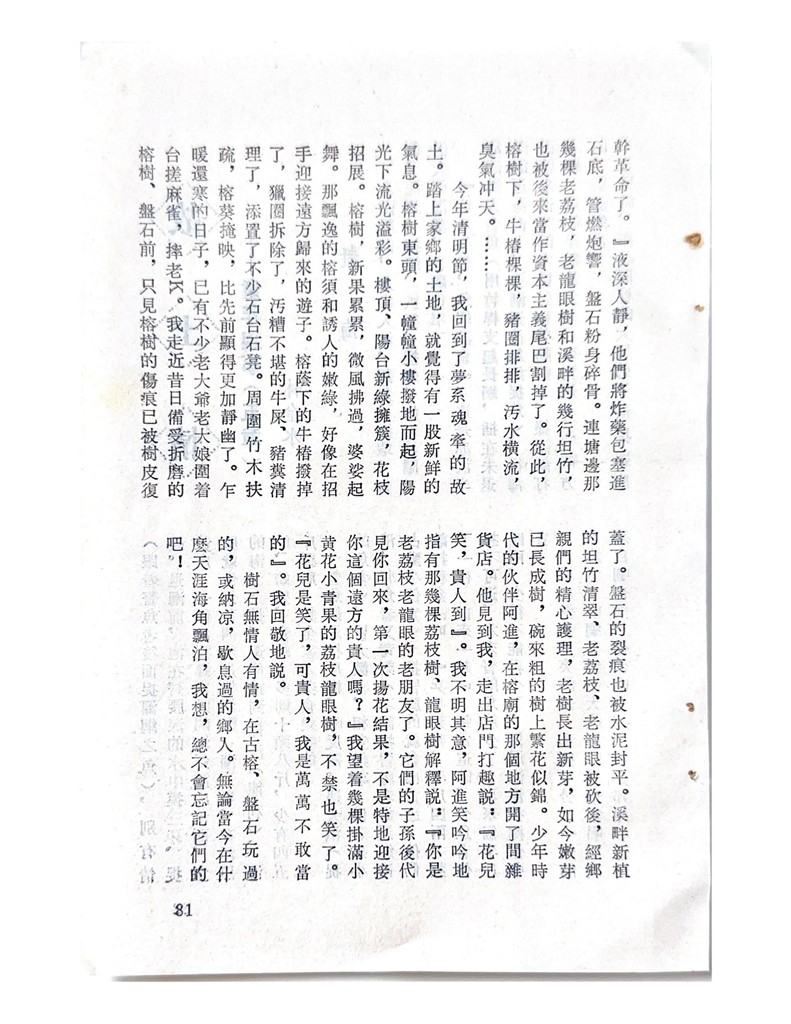 幹革命了。『液深人靜，他們將炸藥包塞進
石底，管燃炮響，盤石粉身碎骨。連塘邊那
幾棵老荔枝，老龍眼樹和溪畔的幾行坦竹，
也被後來當作資本主義尾巴割掉了。從此，
榕樹下，牛樁棵棵，豬圈排排，汚水橫流，
臭氣冲天。……
今年清明節，我回到了夢系魂牽的故
土。踏上家鄉的土地，就覺得有一股新鮮的
氣息。榕樹東頭，一幢幢小樓撥地而起，陽
光下流光溢彩。樓頂、陽台新綠擁簇，花枝
招展。榕樹，新果累累，微風拂過，婆娑起
舞。那飄逸的榕須和誘人的嫩綠，好像在招
手迎接遠方歸來的遊子。榕蔭下的牛樁撥掉
了，獵圈拆除了，汚糟不堪的牛屎、豬糞清
理了，添置了不少石台石凳。周圍竹木扶
疏，榕葵掩映，比先前顯得更加靜幽了。乍
暖還寒的日子，已有不少老大爺老大娘圍着
台搓麻雀，摔老K。我走近昔日備受折磨的
榕樹、盤石前，只見榕樹的傷痕已被樹皮復
蓋了。盤石的裂痕也被水泥封平。溪畔新植
的坦竹清翠、老荔枝、老龍眼被砍後，經鄉
親們的精心護理，老樹長出新芽，如今嫩芽
已長成樹，碗來粗的樹上繁花似錦。少年時
代的伙伴阿進，在榕廟的那個地方開了間雜
貨店。他見到我，走出店門打趣説：『花兒
笑，貴人到』。我不明其意，阿進笑吟吟地
指有那幾棵荔枝樹、龍眼樹解釋説：『你是
老荔枝老龍眼的老朋友了。它們的子孫後代
見你回來，第一次揚花結果，不是特地迎接
你這個遠方的貴人嗎？』我望着幾棵掛滿小
黄花小青果的荔枝龍眼樹，不禁也笑了。
『花兒是笑了，可貴人，我是萬萬不敢當
的』。我回敬地説。
樹石無情人有情，在古榕、盤石玩過
的，或納凉，歇息過的鄉人。無論當今在什
麽天涯海角飄泊，我想，總不會忘記它們的
吧！
81